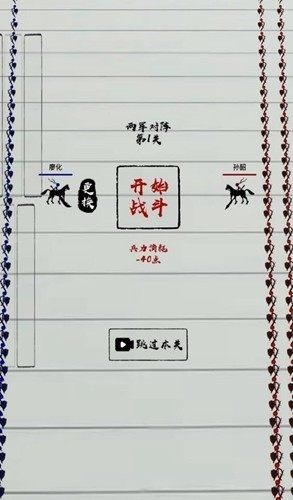 两军对阵
第1关
廖化
孙韶
更换
开始
战斗
兵力消耗
-40点
跳过本关